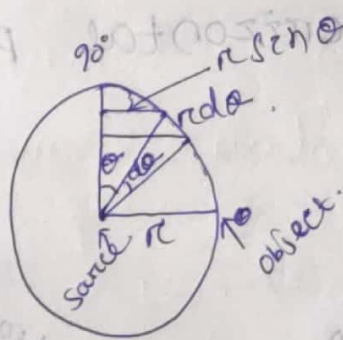 90°
r sin θ
r dθ.
θ
dθ
sarce
r
θ
object.